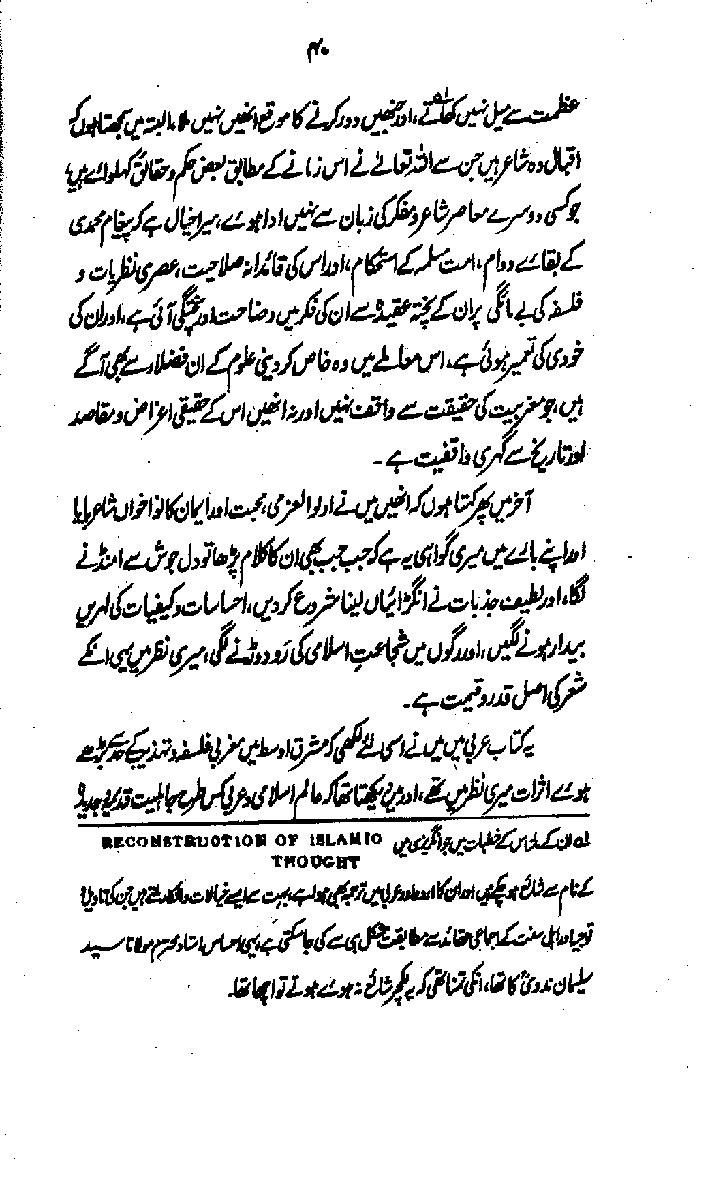 ۴۰
عظمت سے میل نہیں کھاتے، اور جنہیں دور کرنے کا موقع انھیں نہیں ملا، البتہ میں سمجھتا ہوں کہ
اقبال وہ شاعر ہیں جن سے اللہ تعالےٰ نے اس زمانے کے مطابق بعض حکم و حقائق کہلوائے ہیں
جو کسی دوسرے معاصر شاعر و مفکر کی زبان سے نہیں ادا ہوئے، میرا خیال ہے کہ پیغام محمدی
کے بقائے دوام، امت مسلمہ کے استحکام، اور اس کی قائدانہ صلاحیت، عصری نظریات و
فلسفہ کی بے مائگی پر ان کے پختہ عقیدہ سے ان کی فکر میں وضاحت اور پختگی آئی ہے، اور ان کی
خودی کی تعمیر ہوئی ہے، اس معاملے میں وہ خاص کر دینی علوم کے ان فضلاء سے بھی آگے
ہیں، جو مغربیت کی حقیقت سے واقف نہیں اور نہ انھیں اس کے حقیقی اغراض و مقاصد
اور تاریخ سے گہری واقفیت ہے۔
آخر میں پھر کہتا ہوں کہ انھیں میں نے اولوالعزمی، محبت اور ایمان کا نوا خواں شاعر پایا
اور اپنے بارے میں میری گواہی یہ ہے کہ جب جب بھی ان کا کلام پڑھا تو دل جوش سے امنڈنے
لگا، اور لطیف جذبات نے انگڑائیاں لینا شروع کر دیں، احساسات و کیفیات کی لہریں
بیدار ہونے لگیں، اور رگوں میں شجاعتِ اسلامی کی رَو دوڑنے لگی، میری نظر میں یہی انکے
شعر کی اصل قدر و قیمت ہے۔
یہ کتاب عربی میں میں نے اسی لئے لکھی کہ مشرق اوسط میں مغربی فلسفہ و تہذیب کے بڑھتے
ہوئے اثرات میری نظر میں تھے، اور میں دیکھتا تھا کہ عالم اسلامی و عربی کس طرح جاہلیت قدیمہ و جدیدہ
لہ ان کے مدراس کے خطبات میں جو انگریزی میں RECONSTRUCTION OF ISLAMIC
THOUGHT
کے نام سے شائع ہو چکے ہیں اور ان کا اردو اور عربی میں ترجمہ بھی ہوا ہے، بہت سے ایسے خیالات و افکار ملتے ہیں جن کی تاویل
توجیہ اور اہل سنت کے اجماعی عقائد سے مطابقت مشکل ہی سے کی جا سکتی ہے، یہی احساس استاد محترم مولانا سید
سلیمان ندویؒ کا تھا، انکی تمنا تھی کہ یہ لکچر شائع نہ ہوئے ہوتے تو اچھا تھا۔